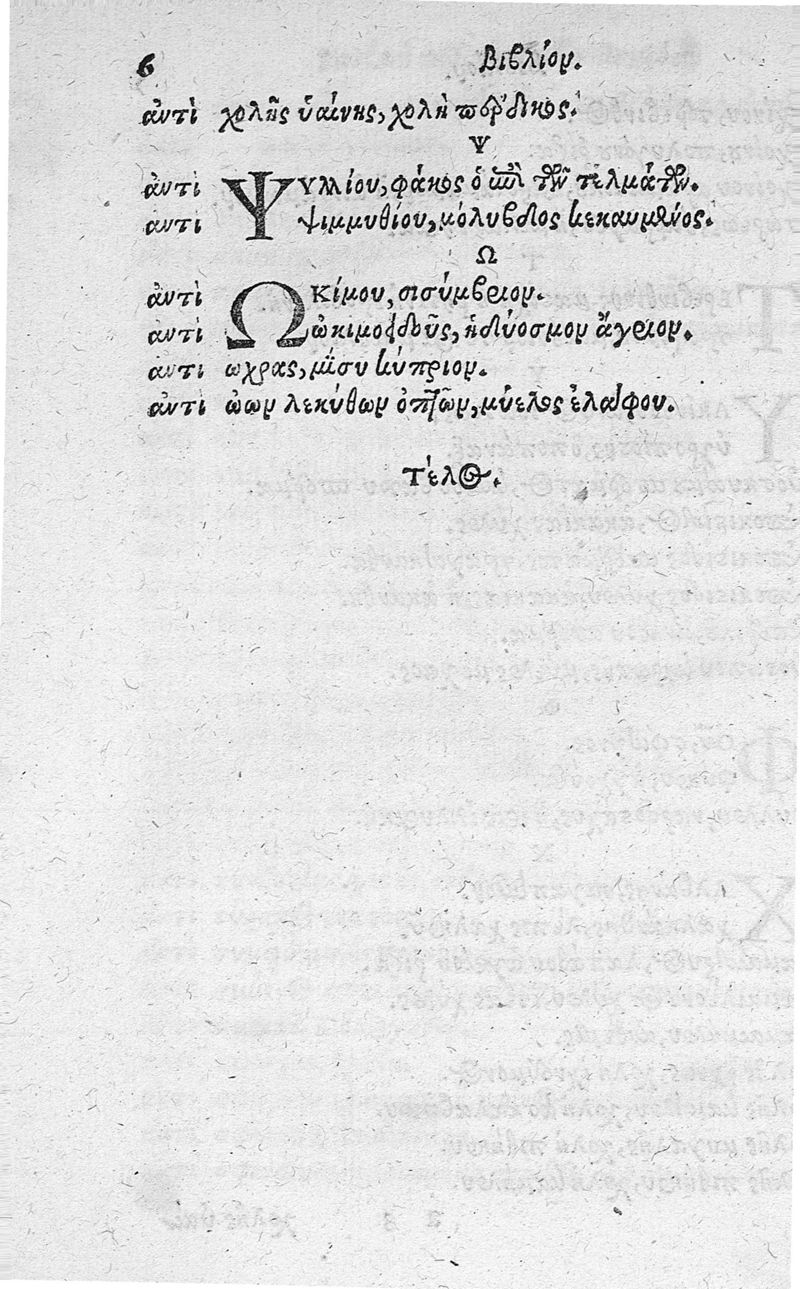 6 βιβλίον.
ἀντὶ χολῆς ὑαίνης, χολὴ πέρδικος.
Ψ
ἀντὶ Ψυλλίου, φάκος ὁ ἐπὶ τῶν τελμάτων.
ἀντὶ ψιμμυθίου, μόλυβδος κεκαυμένος.
Ω
ἀντὶ Ωκίμου, σισύμβριον.
ἀντὶ ὠκιμοειδοῦς, ἡδύοσμον ἄγριον.
ἀντὶ ωχρας, μίσυ κύπριον.
ἀντὶ ὠῶν λεκύθων ὀπτῶν, μύελος ἐλαίφου.
Τέλος.